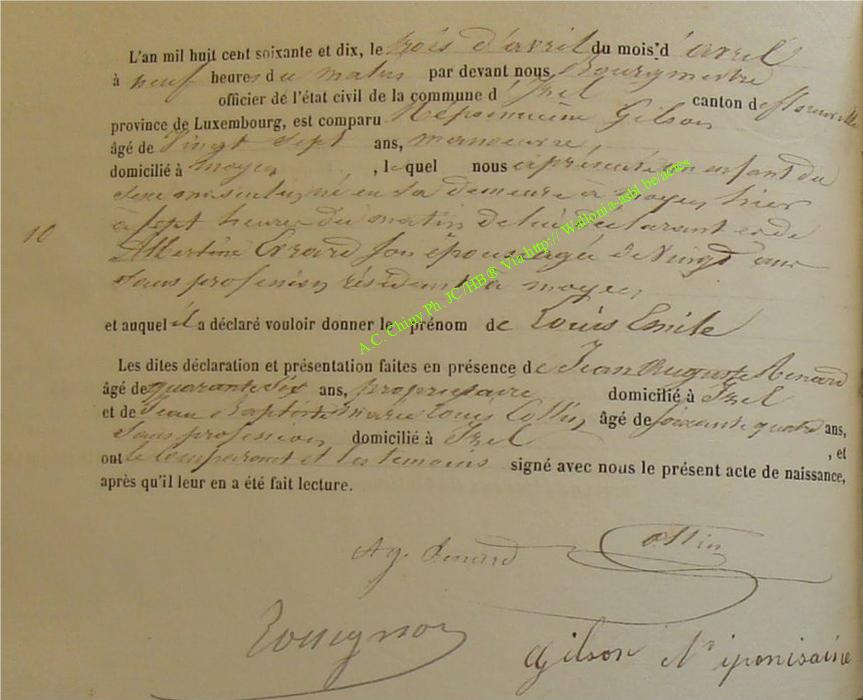 L'an mil huit cent soixante et dix, le trois d'avril du mois d'avril
à neuf heures du matin par devant nous Bourgmestre
officier de l'état civil de la commune d'Izel canton de Florenville
province de Luxembourg, est comparu Népomucène Gilson
âgé de Vingt sept ans, manoeuvre
domicilié à moyen, lequel nous a présenté un enfant du
sexe masculin né en sa demeure a moyen hier
10 à sept heures du matin de lui déclarant et de
Albertine Evrard son épouse agée de Vingt ans
sans profession résidant à moyen
et auquel il a déclaré vouloir donner le prénom de Louis Emile
Les dites déclaration et présentation faites en présence de Jean Auguste Renard
âgé de quarante six ans, propriétaire domicilié à Izel
et de Jean Baptiste Marie Louis Collin âgé de soixante quatre ans,
sans profession domicilié à Izel, et
ont le comparant et les temoins signé avec nous le présent acte de naissance,
après qu'il leur en a été fait lecture.
A.C. Chiny Ph. JC/HB® Via http://Wallonia-asbl.be/actes
Ag. Renard Collin
Gilson